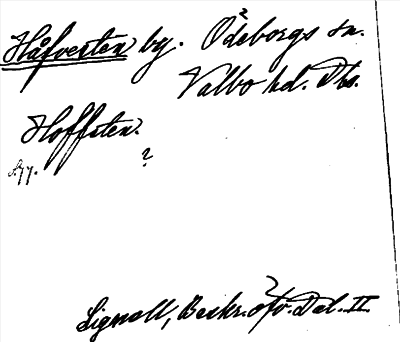 Håfversten by. Ödeborgs sn.
Valbo hd. Dls.
Hoffsten.
s. 77.
?
Lignell, Beskr. öfv. Dal. II